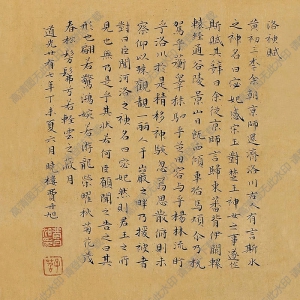 洛神賦
黃初三年余朝京師還濟洛川古人有言斯水
之神名曰宓妃感宋玉對楚王神女之事遂作
斯賦其辭曰余從京師言歸東藩背伊闕越
轘轅經通谷陵景山日既西傾車殆馬煩爾乃稅
駕乎蘅皋秣駟乎芝田容與乎楊林流盼
乎洛川於是精移神駭忽焉思散俯則未
察仰以殊觀覩一麗人于巖之畔乃援御者
對曰臣聞河洛之神名曰宓妃然則君王之所
見也無乃是乎其狀若何臣願聞之告之曰其
形也翩若驚鴻婉若游龍榮曜秋菊華茂
春松髣髴兮若輕雲之蔽月
道光廿有七年丁未夏六月